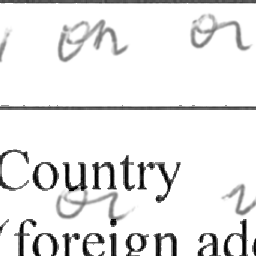 on or
Country
or
(foreign